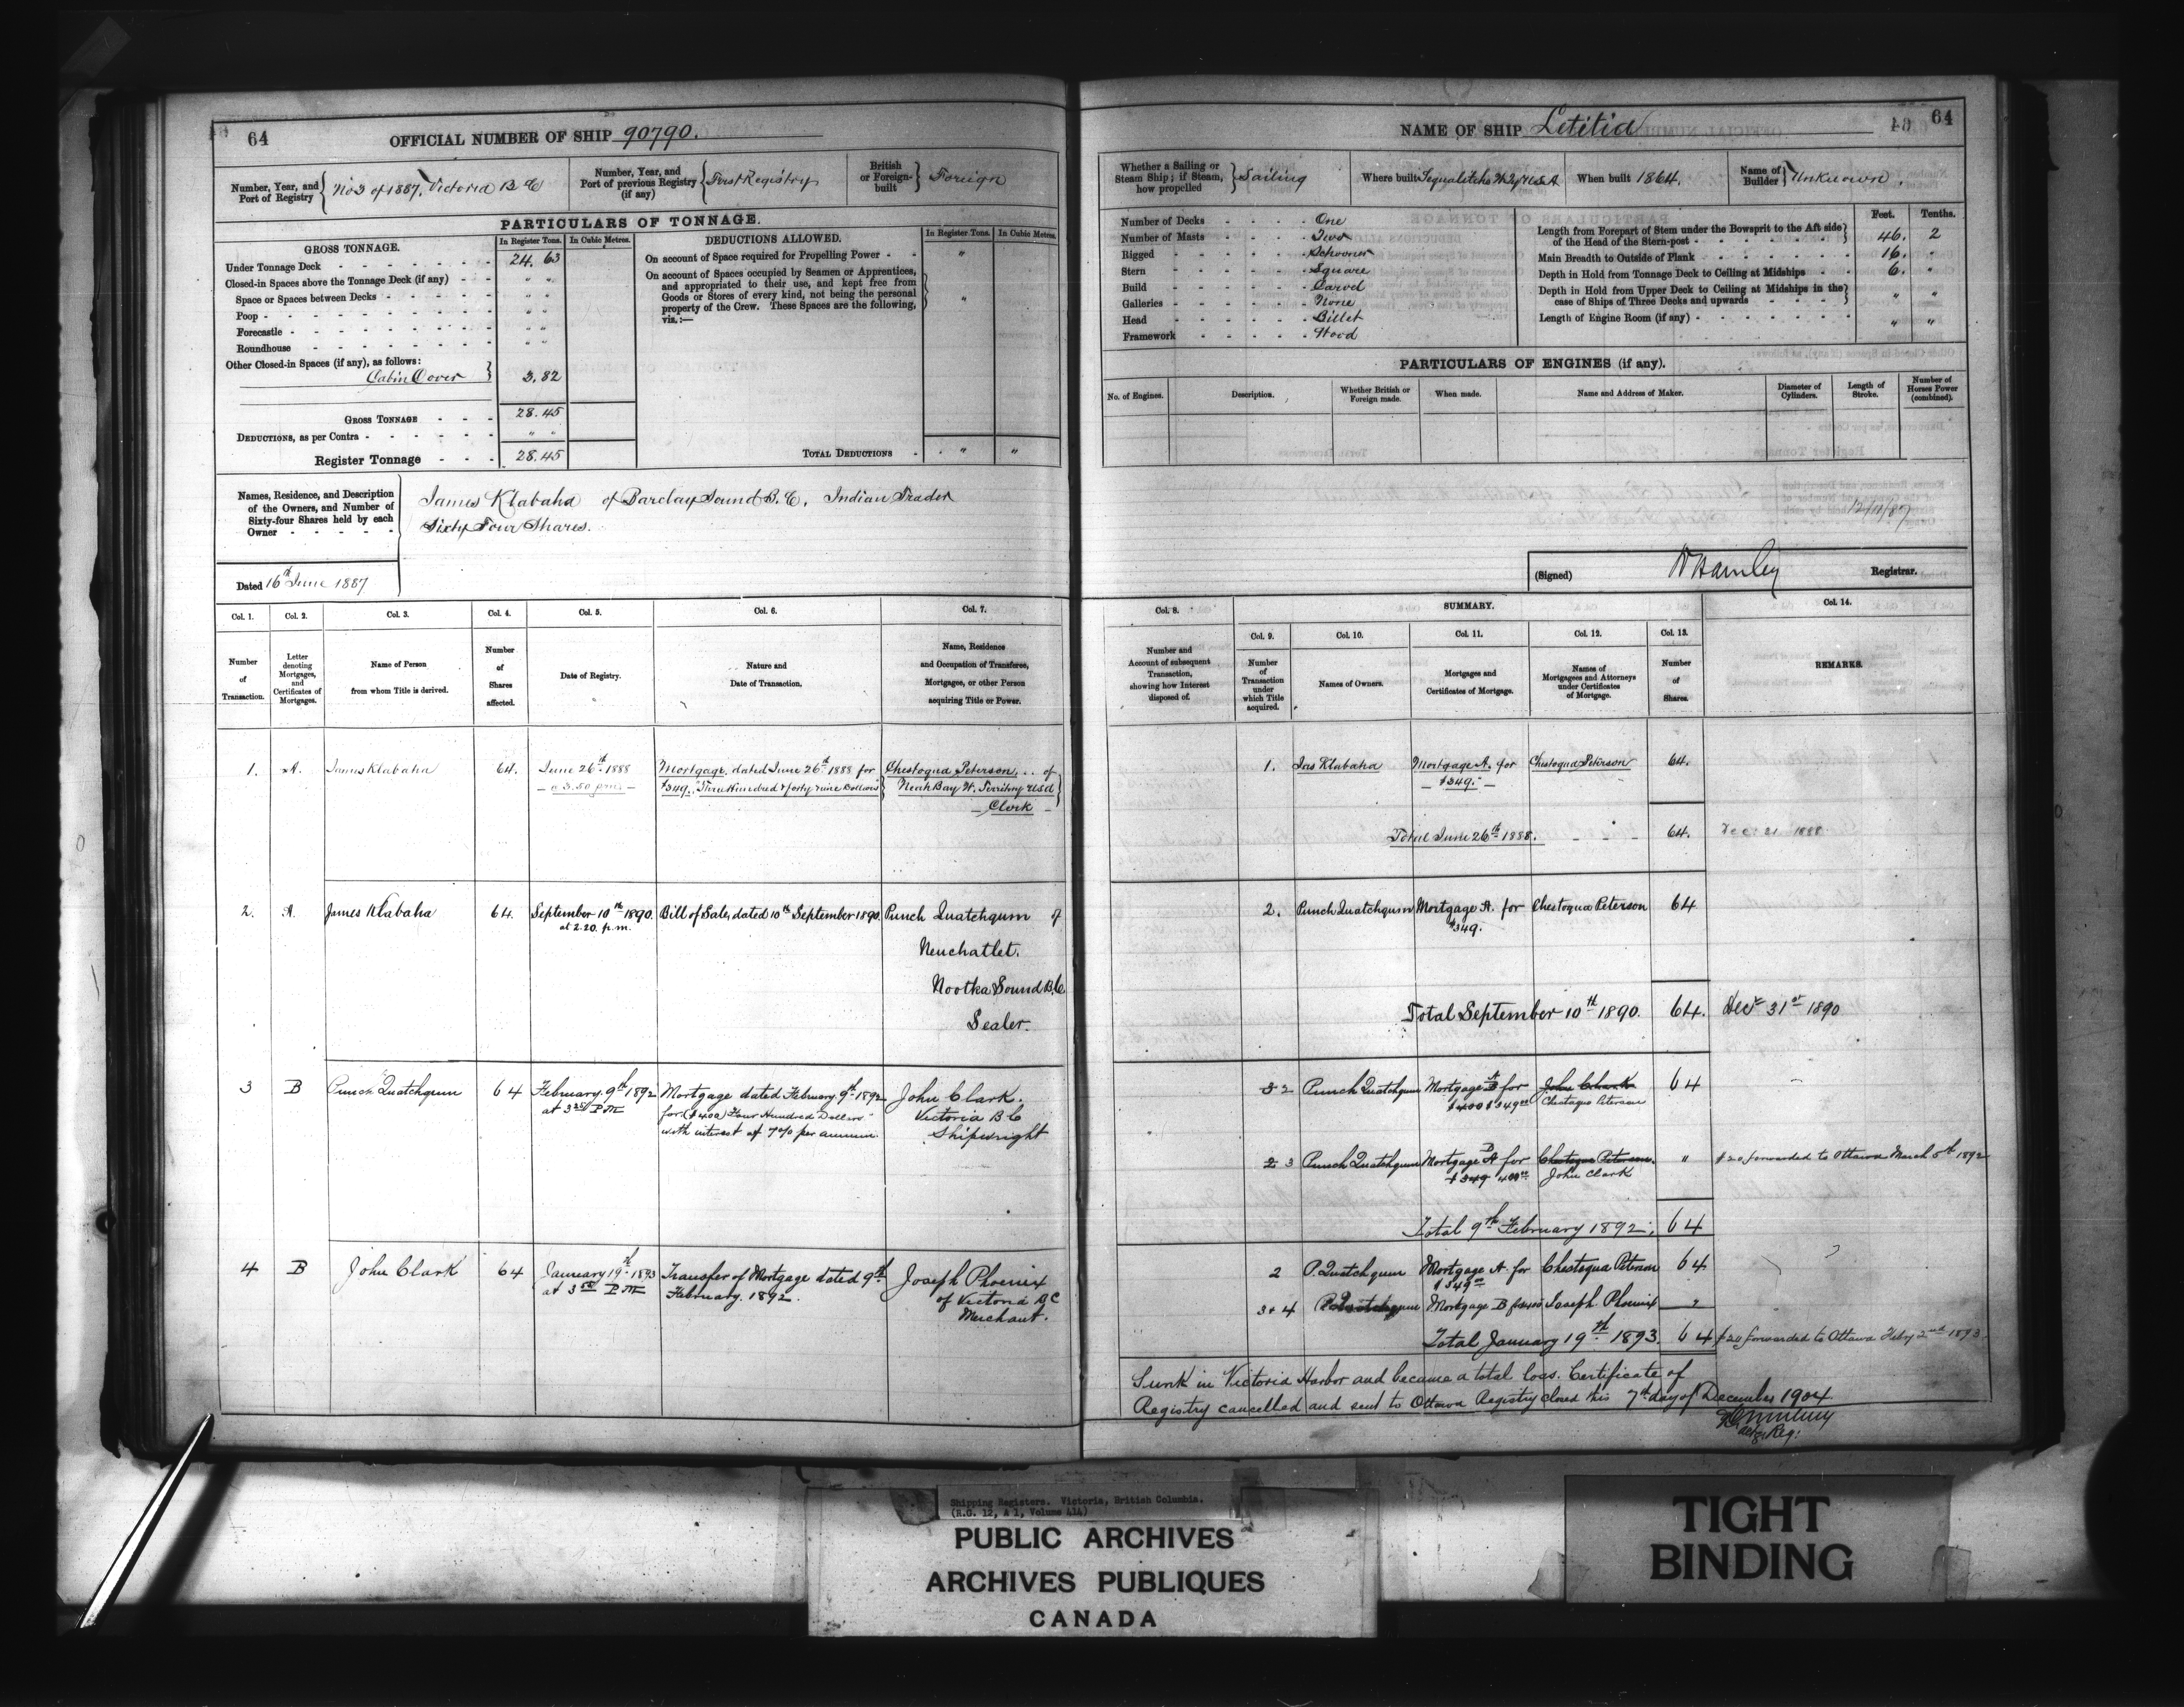 64
OFFICIAL NUMBER OF SHIP 90790.
Number, Year, and Port of Registry } No 3 of 1887, Victoria B C
Number, Year, and Port of previous Registry (if any) { First Registry
British or Foreign-built } Foreign
PARTICULARS OF TONNAGE.
GROSS TONNAGE. In Register Tons. In Cubic Metres.
Under Tonnage Deck - 24. 63
Closed-in Spaces above the Tonnage Deck (if any) - " "
Space or Spaces between Decks - " "
Poop - " "
Forecastle - " "
Roundhouse - " "
Other Closed-in Spaces (if any), as follows:
Cabin Cover } 3.82
GROSS TONNAGE - 28.45
DEDUCTIONS, as per Contra - " "
Register Tonnage - 28.45
DEDUCTIONS ALLOWED. In Register Tons. In Cubic Metres.
On account of Space required for Propelling Power - "
On account of Spaces occupied by Seamen or Apprentices,
and appropriated to their use, and kept free from
Goods or Stores of every kind, not being the personal
property of the Crew. These Spaces are the following,
viz.:— "
TOTAL DEDUCTIONS - " "
Names, Residence, and Description
of the Owners, and Number of
Sixty-four Shares held by each
Owner - - - - -
James Klabaha of Barclay Sound B.C. Indian Trader
Sixty Four Shares.
Dated 16th June 1887
Col. 1. Col. 2. Col. 3. Col. 4. Col. 5. Col. 6. Col. 7.
Number of Transaction.
Letter denoting Mortgages, and Certificates of Mortgages.
Name of Person from whom Title is derived.
Number of Shares affected.
Date of Registry.
Nature and Date of Transaction.
Name, Residence and Occupation of Transferee, Mortgagee, or other Person acquiring Title or Power.
1. A. James Klabaha 64. June 26th 1888 Mortgage, dated June 26th 1888 for Chestoqua Peterson, of
a 3.50 pm $349. Three Hundred & forty nine Dollars Neah Bay W. Territory USA
Clerk
2. A. James Klabaha 64. September 10th 1890. Bill of Sale, dated 10th September 1890. Punch Quatchgum of
at 2.20. p.m. Neuchatlet.
Nootka Sound B.C
Sealer.
3 B Punch Quatchgum 64 February 9th 1892 Mortgage dated February 9th 1892 John Clark.
at 3 PM for ($400) Four Hundred Dollars Victoria B C
with interest at 7% per annum. Shipwright
4 B John Clark 64 January 19th 1893 Transfer of Mortgage dated 9th Joseph Phoenix
at 3 PM February. 1892. of Victoria B C
Merchant.
NAME OF SHIP Letitia
64
Whether a Sailing or Steam Ship; if Steam, how propelled } Sailing
Where built
When built 1864.
Name of Builder } Unknown.
Number of Decks - One
Number of Masts - Two
Rigged - Schooner
Stern - Square
Build - Carvel
Galleries - None
Head - Billet
Framework - Wood
Feet. Tenths.
Length from Forepart of Stem under the Bowsprit to the Aft side
of the Head of the Stern-post - 46. 2
Main Breadth to Outside of Plank - 16. "
Depth in Hold from Tonnage Deck to Ceiling at Midships - 6. "
Depth in Hold from Upper Deck to Ceiling at Midships in the
case of Ships of Three Decks and upwards - " "
Length of Engine Room (if any) - " "
PARTICULARS OF ENGINES (if any).
No. of Engines. Description. Whether British or Foreign made. When made. Name and Address of Maker. Diameter of Cylinders. Length of Stroke. Number of Horses Power (combined).
12/11/87
(Signed) W Hamley Registrar.
Col. 8. SUMMARY. Col. 14.
Col. 9. Col. 10. Col. 11. Col. 12. Col. 13.
Number and Account of subsequent Transaction, showing how Interest disposed of.
Number of Transaction under which Title acquired.
Names of Owners.
Mortgages and Certificates of Mortgage.
Names of Mortgagees and Attorneys under Certificates of Mortgage.
Number of Shares.
REMARKS.
1. Jas Klabaha Mortgage A. for Chestoqua Peterson 64.
$349.
Total June 26th 1888. 64. Dec. 21 1888
2. Punch Quatchgum Mortgage A. for Chestoqua Peterson 64
$349.
Total September 10th 1890. 64. Decr 31st 1890
3 2 Punch Quatchgum Mortgage B A for John Clark 64
$400 $349 Chestoqua Peterson
2 3 Punch Quatchgum Mortgage A B for Chestoqua Peterson " $20 forwarded to Ottawa March 5th 1892
$349 400 John Clark
Total 9th February 1892. 64
2 P. Quatchgum Mortgage A. for Chestoqua Peterson 64
$349
3 & 4 P. Quatchgum Mortgage B $400 Joseph Phoenix "
Total January 19th 1893. 64 $20 forwarded to Ottawa Feby 2nd 1893
Sunk in Victoria Harbor and became a total loss. Certificate of
Registry cancelled and sent to Ottawa Registry closed this 7th day of December 1904
Reg:
Shipping Registers. Victoria, British Columbia.
(R.G. 12, A 1, Volume 414)
PUBLIC ARCHIVES
ARCHIVES PUBLIQUES
CANADA
TIGHT
BINDING